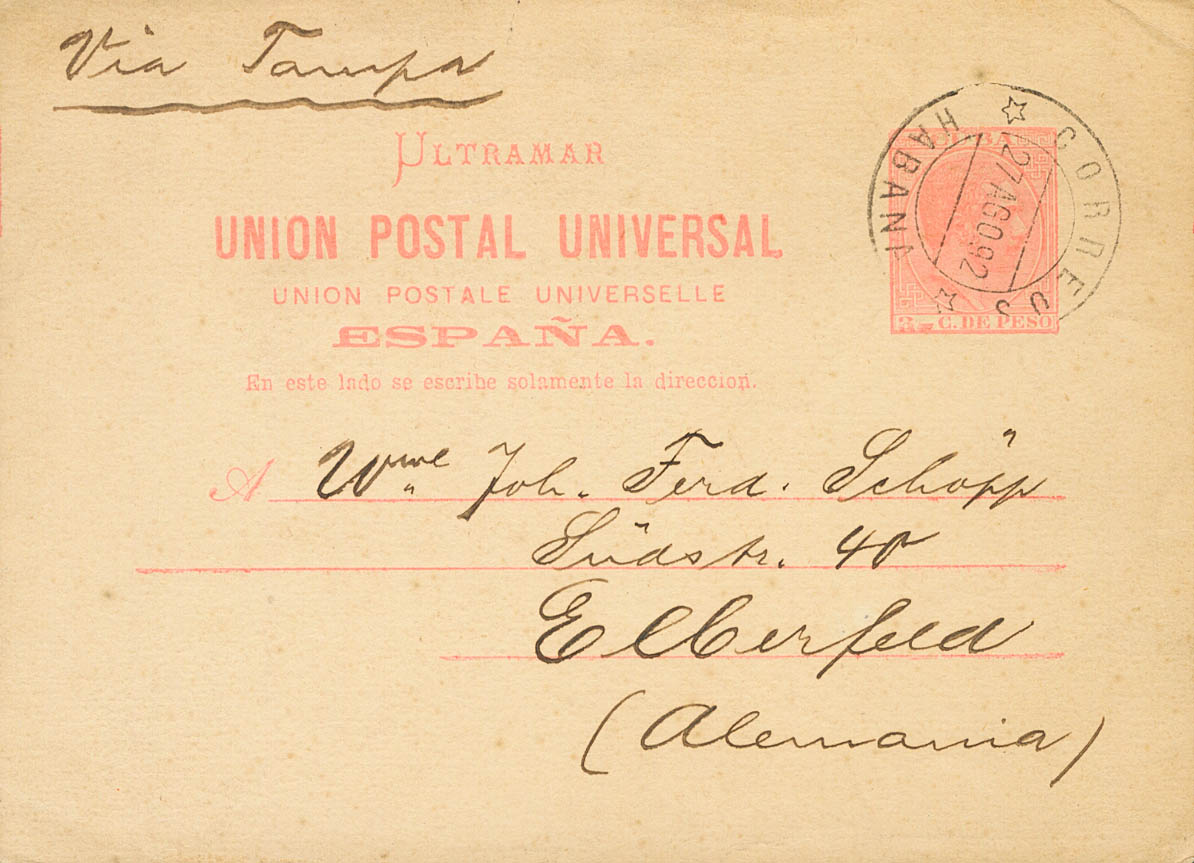 Via Tampa
ULTRAMAR
UNION POSTAL UNIVERSAL
UNION POSTALE UNIVERSELLE
ESPAÑA.
En este lado se escribe solamente la direccion.
CORREOS
27 AGO. 92
HABANA
C. DE PESO
A Wwe Joh. Ferd. Schöpp
Südstr. 40
Elberfeld
(Alemania)